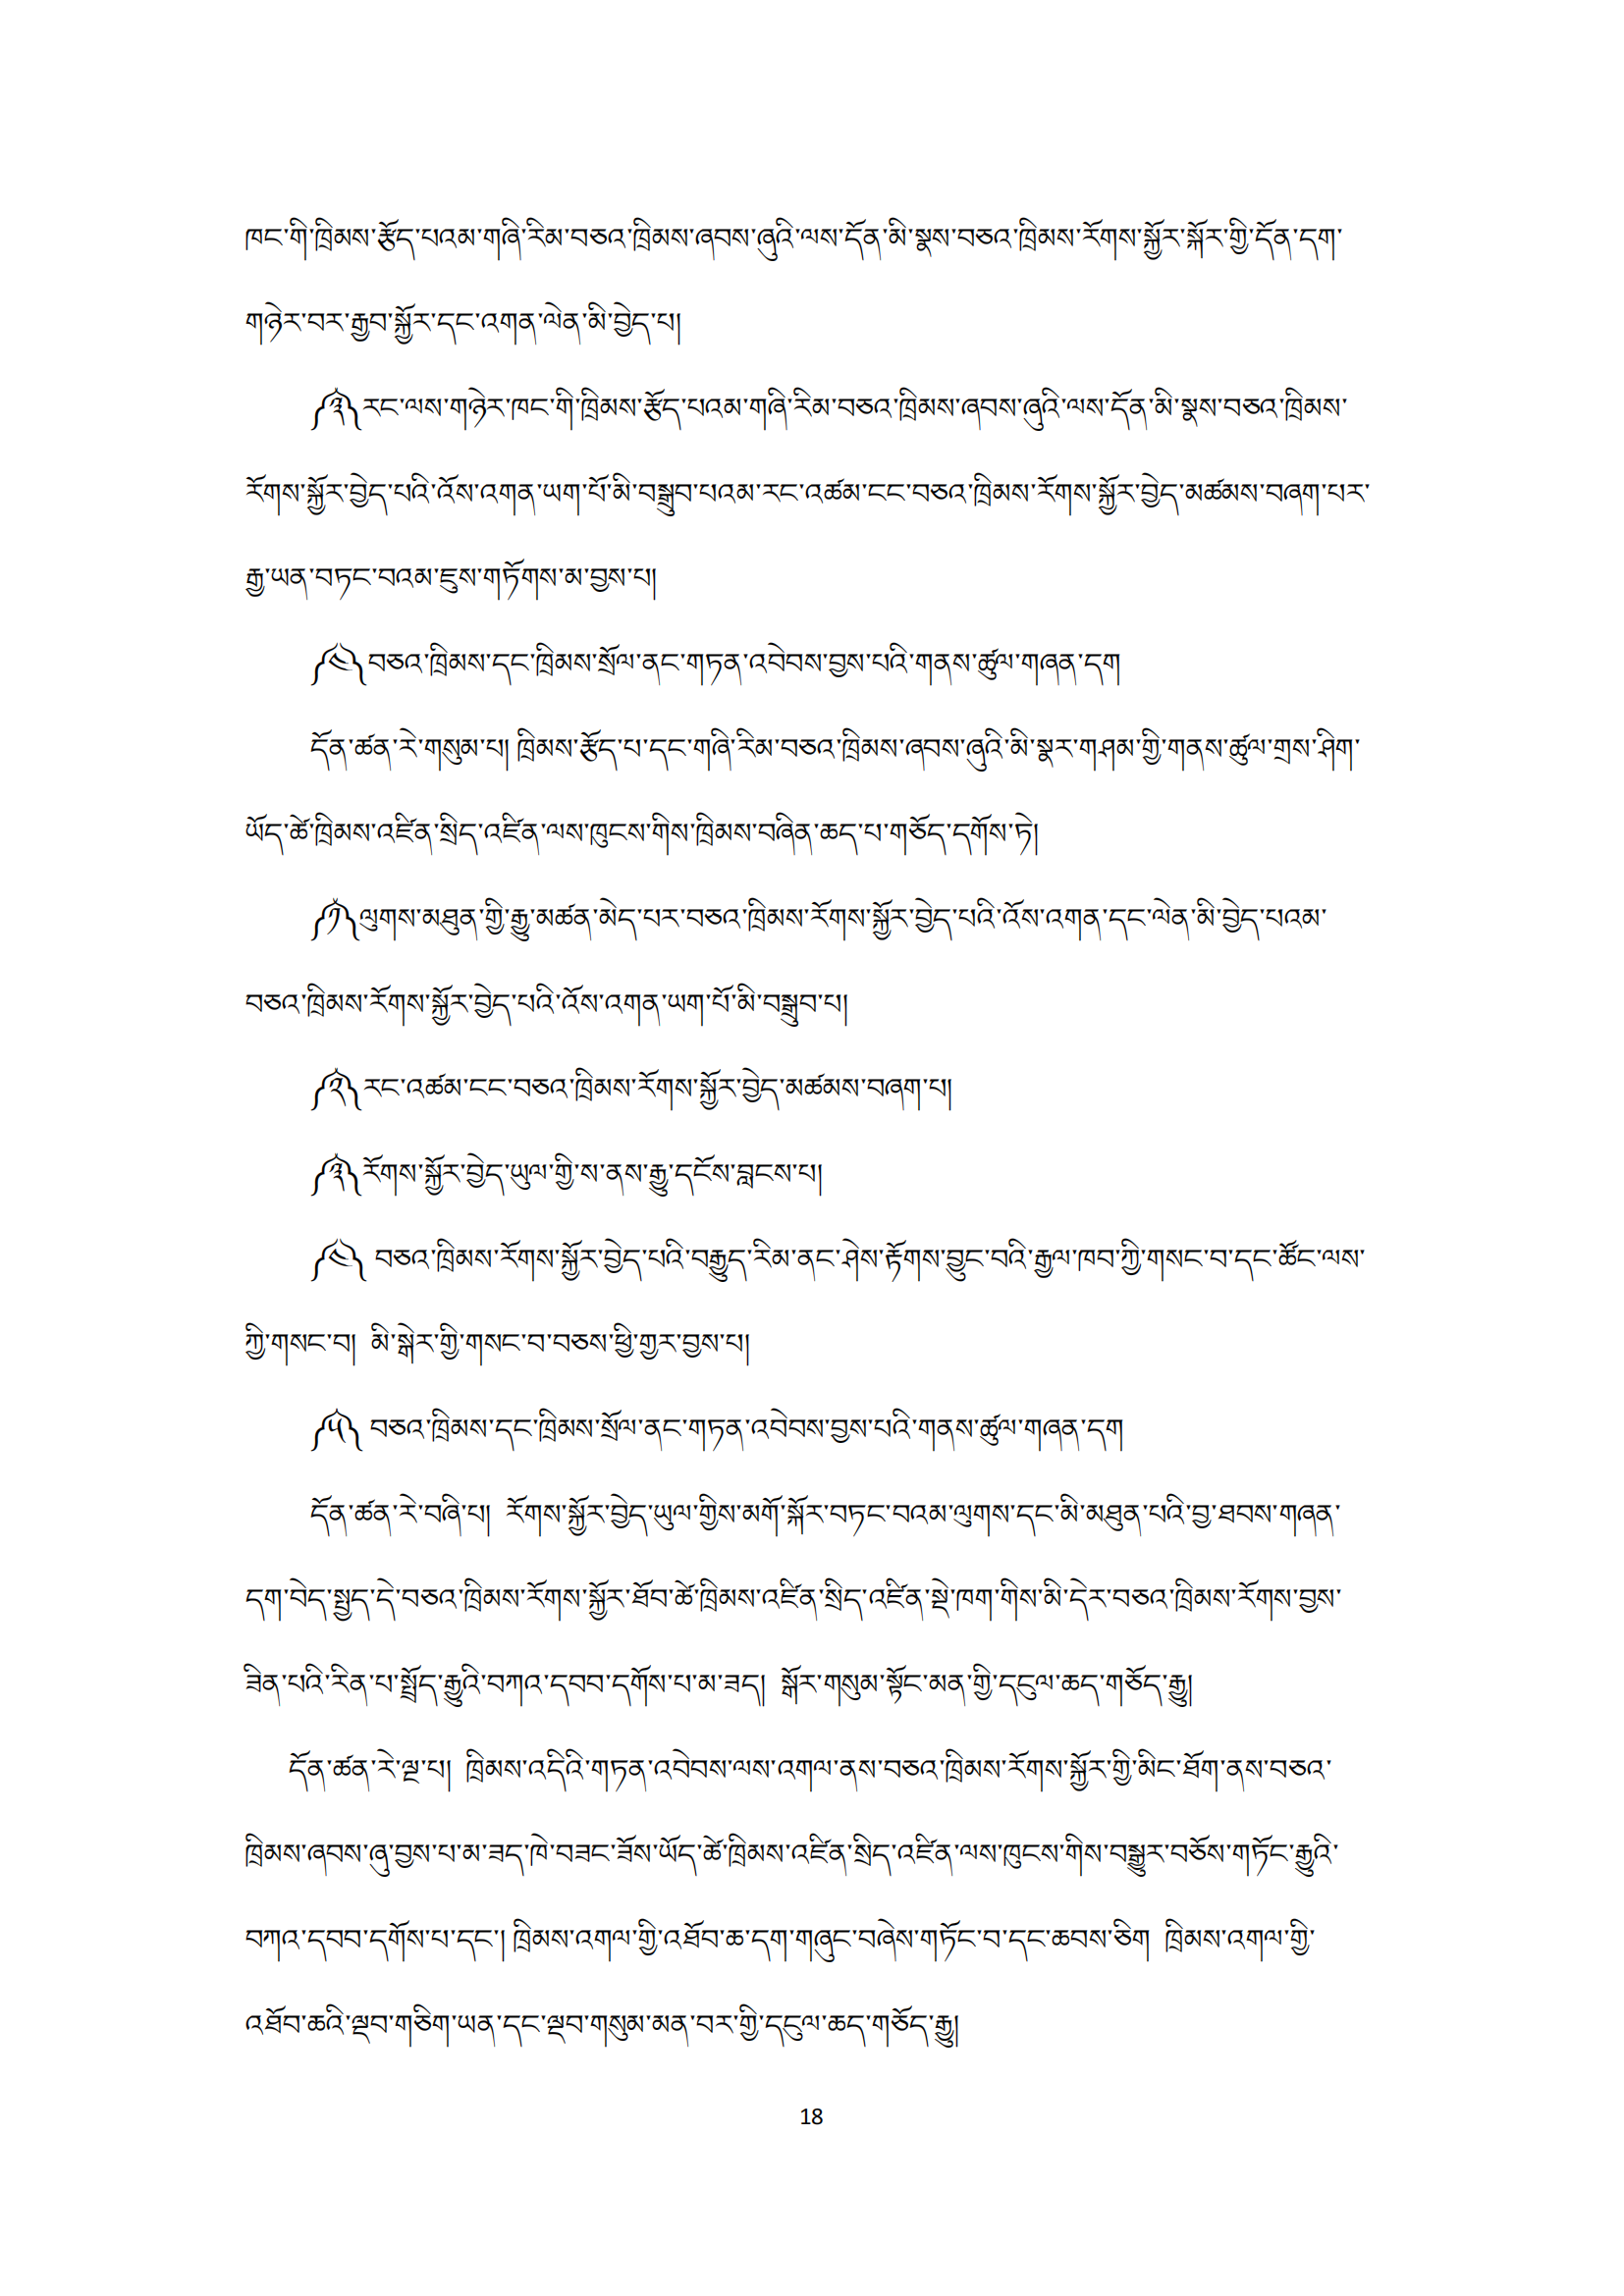 ཁང་གི་ཁྲིམས་རྩོད་པའམ་གཞི་རིམ་བཅའ་ཁྲིམས་ཞབས་ཞུའི་ལས་དོན་མི་སྣས་བཅའ་ཁྲིམས་རོགས་སྐྱོར་སྐོར་གྱི་དོན་དག་
གཉེར་བར་རྒྱབ་སྐྱོར་དང་འགན་ལེན་མི་བྱེད་པ།
༼༣༽རང་ལས་གཉེར་ཁང་གི་ཁྲིམས་རྩོད་པའམ་གཞི་རིམ་བཅའ་ཁྲིམས་ཞབས་ཞུའི་ལས་དོན་མི་སྣས་བཅའ་ཁྲིམས་
རོགས་སྐྱོར་བྱེད་པའི་འོས་འགན་ཡག་པོ་མི་བསྒྲུབ་པའམ་རང་འཚམ་ངང་བཅའ་ཁྲིམས་རོགས་སྐྱོར་བྱེད་མཚམས་བཞག་པར་
རྒྱ་ཡན་བཏང་བའམ་ཇུས་གཏོགས་མ་བྱས་པ།
༼༤༽བཅའ་ཁྲིམས་དང་ཁྲིམས་སྲོལ་ནང་གཏན་འབེབས་བྱས་པའི་གནས་ཚུལ་གཞན་དག
དོན་ཚན་རེ་གསུམ་པ། ཁྲིམས་རྩོད་པ་དང་གཞི་རིམ་བཅའ་ཁྲིམས་ཞབས་ཞུའི་མི་སྣར་གཤམ་གྱི་གནས་ཚུལ་གྲས་ཤིག་
ཡོད་ཚེ་ཁྲིམས་འཛིན་སྲིད་འཛིན་ལས་ཁུངས་གིས་ཁྲིམས་བཞིན་ཆད་པ་གཅོད་དགོས་ཏེ།
༼༡༽ལུགས་མཐུན་གྱི་རྒྱུ་མཚན་མེད་པར་བཅའ་ཁྲིམས་རོགས་སྐྱོར་བྱེད་པའི་འོས་འགན་དང་ལེན་མི་བྱེད་པའམ་
བཅའ་ཁྲིམས་རོགས་སྐྱོར་བྱེད་པའི་འོས་འགན་ཡག་པོ་མི་བསྒྲུབ་པ།
༼༢༽རང་འཚམ་ངང་བཅའ་ཁྲིམས་རོགས་སྐྱོར་བྱེད་མཚམས་བཞག་པ།
༼༣༽རོགས་སྐྱོར་བྱེད་ཡུལ་གྱི་ས་ནས་རྒྱུ་དངོས་བླངས་པ།
༼༤༽ བཅའ་ཁྲིམས་རོགས་སྐྱོར་བྱེད་པའི་བརྒྱུད་རིམ་ནང་ཤེས་རྟོགས་བྱུང་བའི་རྒྱལ་ཁབ་ཀྱི་གསང་བ་དང་ཚོང་ལས་
ཀྱི་གསང་བ།  མི་སྒེར་གྱི་གསང་བ་བཅས་ཕྱི་གྱར་བྱས་པ།
༼༥༽ བཅའ་ཁྲིམས་དང་ཁྲིམས་སྲོལ་ནང་གཏན་འབེབས་བྱས་པའི་གནས་ཚུལ་གཞན་དག
དོན་ཚན་རེ་བཞི་པ།  རོགས་སྐྱོར་བྱེད་ཡུལ་གྱིས་མགོ་སྐོར་བཏང་བའམ་ལུགས་དང་མི་མཐུན་པའི་བྱ་ཐབས་གཞན་
དག་བེད་སྤྱད་དེ་བཅའ་ཁྲིམས་རོགས་སྐྱོར་ཐོབ་ཚེ་ཁྲིམས་འཛིན་སྲིད་འཛིན་སྡེ་ཁག་གིས་མི་དེར་བཅའ་ཁྲིམས་རོགས་བྱས་
ཟིན་པའི་རིན་པ་སྤྲོད་རྒྱུའི་བཀའ་དབབ་དགོས་པ་མ་ཟད།  སྒོར་གསུམ་སྟོང་མན་གྱི་དངུལ་ཆད་གཅོད་རྒྱུ།
དོན་ཚན་རེ་ལྔ་པ།  ཁྲིམས་འདིའི་གཏན་འབེབས་ལས་འགལ་ནས་བཅའ་ཁྲིམས་རོགས་སྐྱོར་གྱི་མིང་ཐོག་ནས་བཅའ་
ཁྲིམས་ཞབས་ཞུ་བྱས་པ་མ་ཟད་ཁེ་བཟང་ཟོས་ཡོད་ཚེ་ཁྲིམས་འཛིན་སྲིད་འཛིན་ལས་ཁུངས་གིས་བསྒྱུར་བཅོས་གཏོང་རྒྱུའི་
བཀའ་དབབ་དགོས་པ་དང་། ཁྲིམས་འགལ་གྱི་འཐོབ་ཆ་དག་གཞུང་བཞེས་གཏོང་བ་དང་ཆབས་ཅིག  ཁྲིམས་འགལ་གྱི་
འཐོབ་ཆའི་ལྡབ་གཅིག་ཡན་དང་ལྡབ་གསུམ་མན་བར་གྱི་དངུལ་ཆད་གཅོད་རྒྱུ།
18